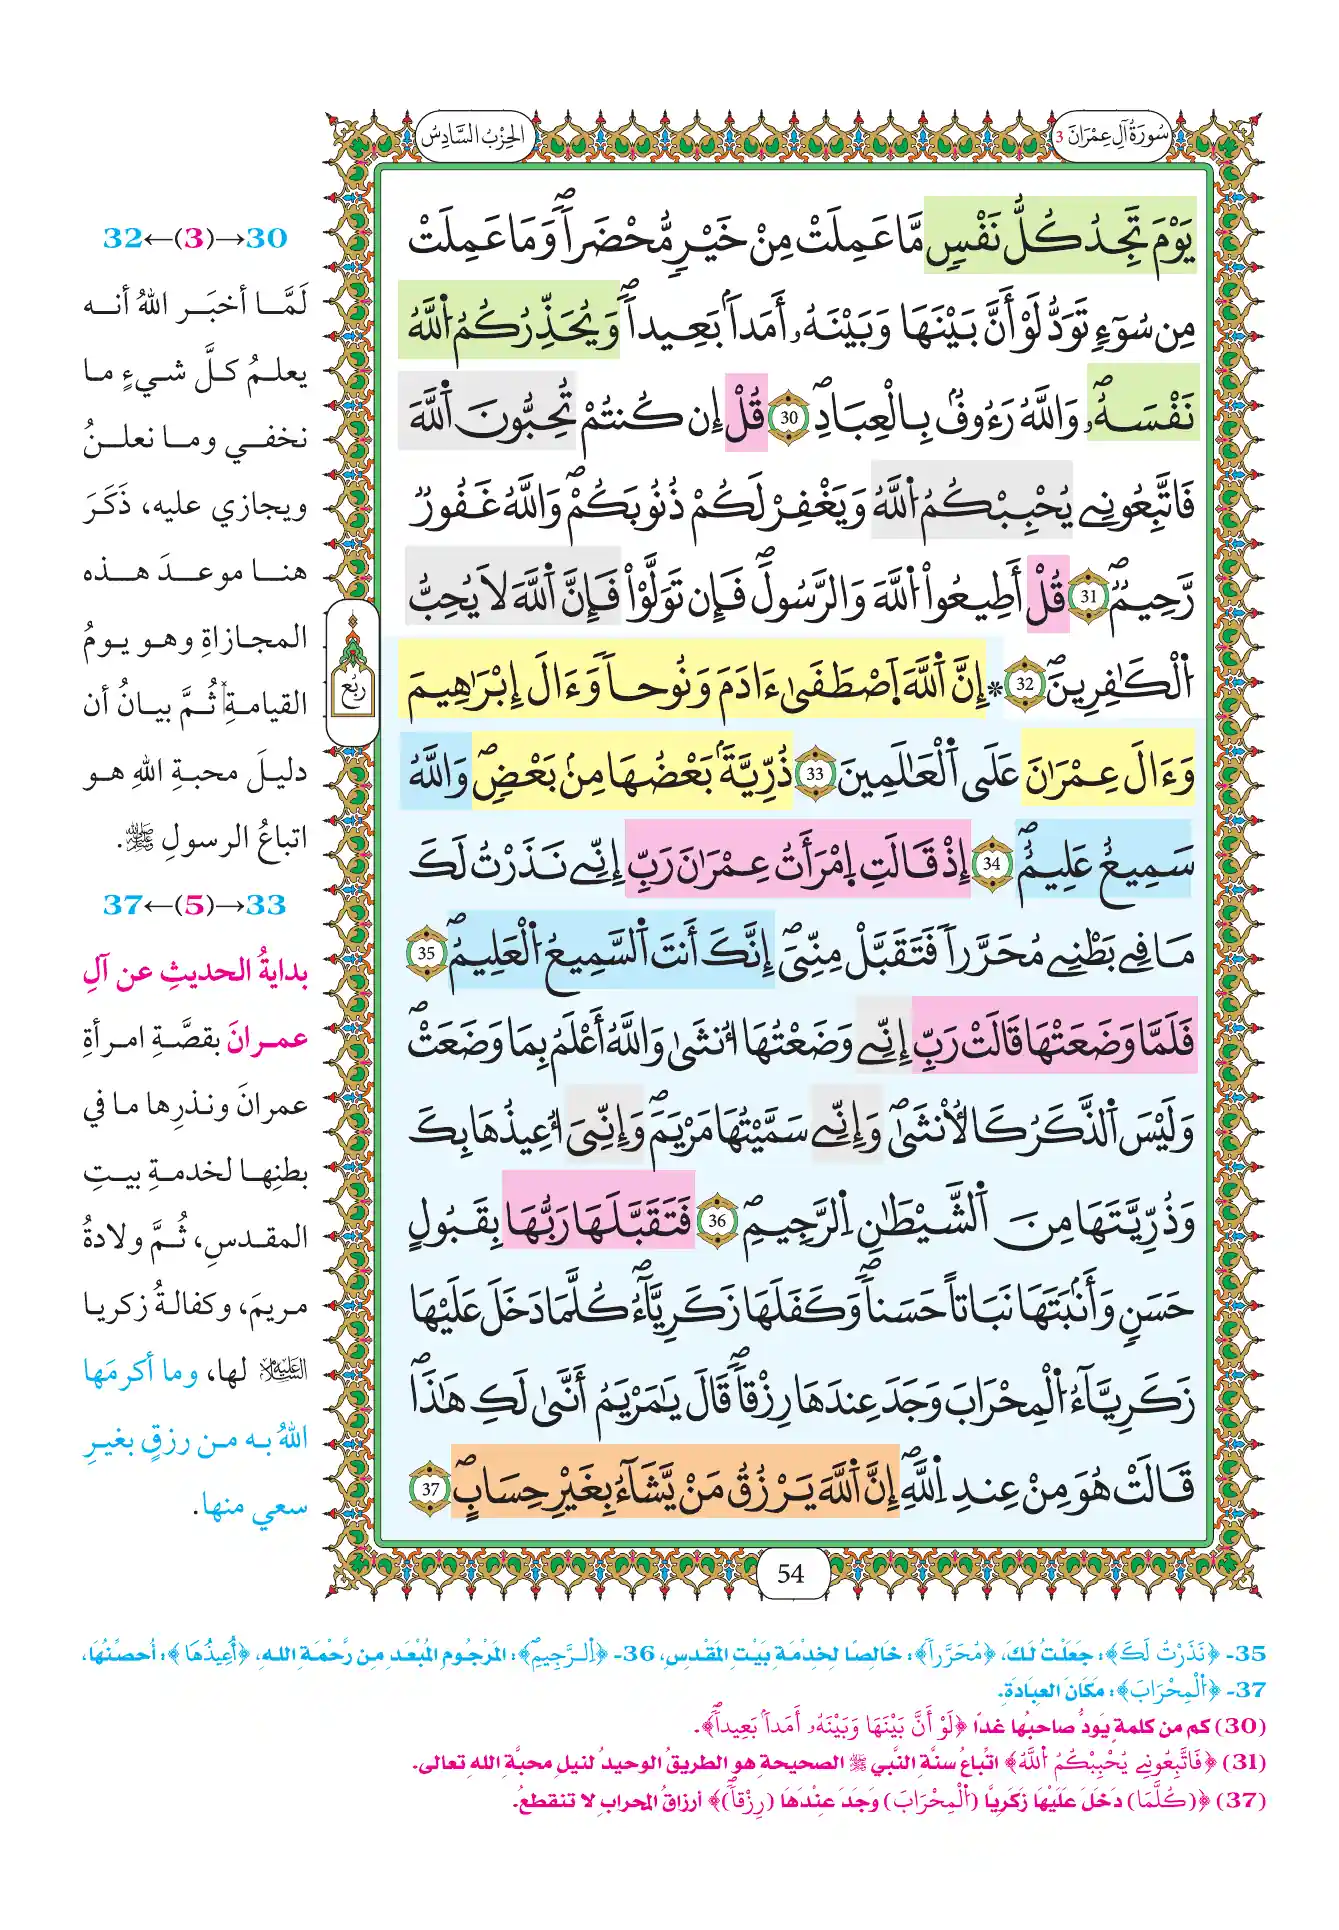 سُورَةُ آلِ عِمْرَانَ 3
الحِزْبُ السَّادِسُ
يَوْمَ تَجِدُ كُلُّ نَفْسٍ مَّا عَمِلَتْ مِنْ خَيْرٍ مُّحْضَراٗۖ وَمَا عَمِلَتْ
مِن سُوٓءٖ تَوَدُّ لَوْ أَنَّ بَيْنَهَا وَبَيْنَهُۥٓ أَمَداَۢ بَعِيداٗۖ وَيُحَذِّرُكُمُ اُ۬للَّهُ
نَفْسَهُۥۖ وَاللَّهُ رَءُوفُۢ بِالْعِبَادِۖ 30 قُلْ إِن كُنتُمْ تُحِبُّونَ اَ۬للَّهَ
فَاتَّبِعُونِے يُحْبِبْكُمُ اُ۬للَّهُ وَيَغْفِرْ لَكُمْ ذُنُوبَكُمْۖ وَاللَّهُ غَفُورٞ
رَّحِيمٞۖ 31 قُلْ أَطِيعُواْ اُ۬للَّهَ وَالرَّسُولَۖ فَإِن تَوَلَّوْاْ فَإِنَّ اَ۬للَّهَ لَا يُحِبُّ
اُ۬لْكَٰفِرِينَۖ 32 * إِنَّ اَ۬للَّهَ اَ۪صْطَفَىٰٓ ءَادَمَ وَنُوحاٗ وَءَالَ إِبْرَٰهِيمَ
وَءَالَ عِمْرَٰنَ عَلَى اَ۬لْعَٰلَمِينَ 33 ذُرِّيَّةَۢ بَعْضُهَا مِنۢ بَعْضٖۖ وَاللَّهُ
سَمِيعٌ عَلِيمٌۖ 34 إِذْ قَالَتِ اِ۪مْرَأَتُ عِمْرَٰنَ رَبِّ إِنِّے نَذَرْتُ لَكَ
مَا فِے بَطْنِے مُحَرَّراٗ فَتَقَبَّلْ مِنِّيَۖ إِنَّكَ أَنتَ اَ۬لسَّمِيعُ اُ۬لْعَلِيمُۖ 35
فَلَمَّا وَضَعَتْهَا قَالَتْ رَبِّ إِنِّے وَضَعْتُهَا أُنثَىٰ وَاللَّهُ أَعْلَمُ بِمَا وَضَعَتْۖ
وَلَيْسَ اَ۬لذَّكَرُ كَالُانثَىٰۖ وَإِنِّے سَمَّيْتُهَا مَرْيَمَۖ وَإِنِّيَ أُعِيذُهَا بِكَ
وَذُرِّيَّتَهَا مِنَ اَ۬لشَّيْطَٰنِ اِ۬لرَّجِيمِۖ 36 فَتَقَبَّلَهَا رَبُّهَا بِقَبُولٍ
حَسَنٖ وَأَنۢبَتَهَا نَبَاتاً حَسَناٗۖ وَكَفَلَهَا زَكَرِيَّآءُۖ كُلَّمَا دَخَلَ عَلَيْهَا
زَكَرِيَّآءُ اُ۬لْمِحْرَابَ وَجَدَ عِندَهَا رِزْقاٗۖ قَالَ يَٰمَرْيَمُ أَنَّىٰ لَكِ هَٰذَاۖ
قَالَتْ هُوَ مِنْ عِندِ اِ۬للَّهِۖ إِنَّ اَ۬للَّهَ يَرْزُقُ مَنْ يَّشَآءُ بِغَيْرِ حِسَابٍۖ 37
رُبُع
54
30→(3)←32
لَمَّا أخبَر اللهُ أنه
يعلمُ كلَّ شيءٍ ما
نخفي وما نعلنُ
ويجازي عليه، ذَكَرَ
هنا موعدَ هذه
المجازاةِ وهو يومُ
القيامةِ، ثُمَّ بيانُ أن
دليلَ محبةِ اللهِ هو
اتباعُ الرسولِ ﷺ.
33→(5)←37
بدايةُ الحديثِ عن آلِ
عمرانَ بقصَّةِ امرأةِ
عمرانَ ونذرِها ما في
بطنِها لخدمةِ بيتِ
المقدسِ، ثُمَّ ولادةُ
مريمَ، وكفالةُ زكريا
عليه السلام لها، وما أكرمَها
اللهُ به من رزقٍ بغيرِ
سعي منها.
35- ﴿نَذَرْتُ لَكَ﴾: جَعَلْتُ لَكَ، ﴿مُحَرَّراٗ﴾: خَالِصًا لِخِدْمَةِ بَيْتِ المَقْدِسِ، 36- ﴿اِ۬لرَّجِيمِۖ﴾: المَرْجُومِ المُبْعَدِ مِن رَّحْمَةِ اللهِ، ﴿أُعِيذُهَا﴾: أُحصِّنُهَا،
37- ﴿اُ۬لْمِحْرَابَ﴾: مَكَانَ العِبَادَةِ.
(30) كم من كلمةٍ يَودُّ صاحبُها غدًا ﴿لَوْ أَنَّ بَيْنَهَا وَبَيْنَهُۥٓ أَمَداَۢ بَعِيداٗۖ﴾.
(31) ﴿فَاتَّبِعُونِے يُحْبِبْكُمُ اُ۬للَّهُ﴾ اتِّباعُ سنَّةِ النَّبي ﷺ الصحيحةِ هو الطريقُ الوحيدُ لنيلِ محبَّةِ اللهِ تعالى.
(37) ﴿(كُلَّمَا) دَخَلَ عَلَيْهَا زَكَرِيَّا (اُ۬لْمِحْرَابَ) وَجَدَ عِنْدَهَا (رِزْقاٗۖ)﴾ أرزاقُ المحرابِ لا تنقطعُ.